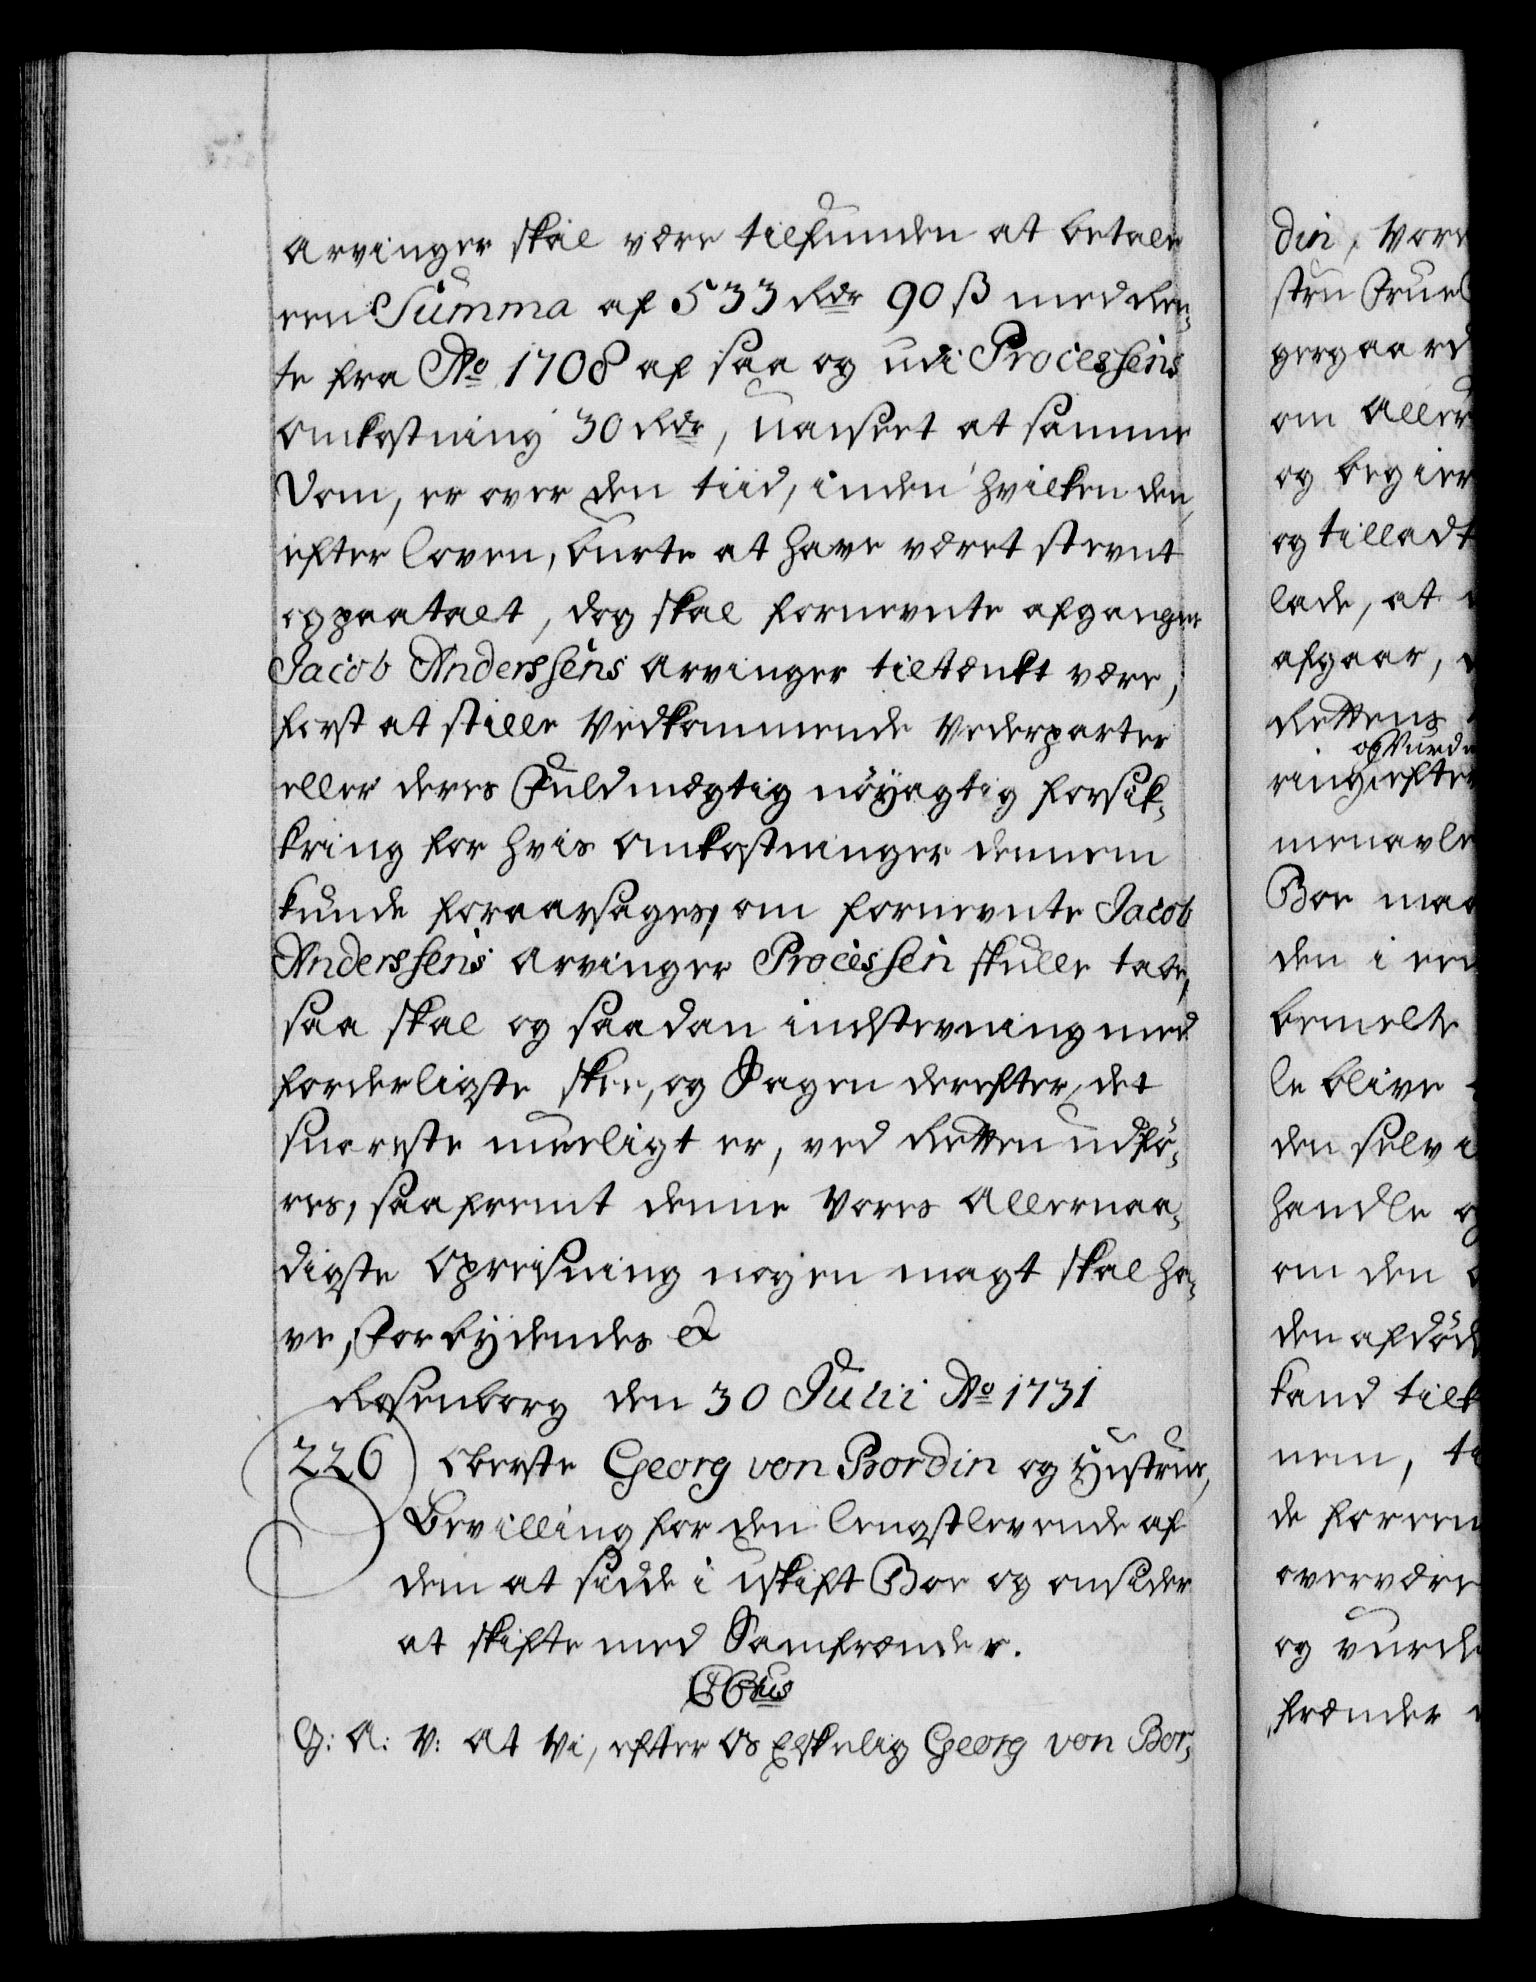 Arvinger skal være tilfunden at betale
een Summa af 533 Rdr 90 ß med Ren-
te fra Ao 1708 af saa og udi Processens
Omkostning 30 Rdr, uanseet at samme
Dom, er over den tiid, inden hvilken den,
efter Loven, burte at have været stevnt
og paatalt, dog skal fornevnte afgangne
Jacob Anderssens Arvinger tiltænkt være,
først at stille Vedkommende Vederparter
eller deres Fuldmægtig nöyagtig forsik-
kring for hvis Omkostninger dennem
kunde foraarsages, om fornevnte Jacob
Anderssens Arvinger Processen skulle tabe,
saa skal og saadan indstevning med
forderligste skee, og Sagen derefter, det
snareste mueligt er, ved Retten udfö-
res, saafremt denne Vores Allernaa-
digste Opreisning nogen magt skal ha-
ve, Forbydendes &
Rosenborg den 30 Julii Ao 1731
226) Oberste Georg von Bordin og Hustrue,
Bevilling for den lengstlevende af
dem at sidde i uskift Boe og omsider
at skifte med Samfrænder.
G: A: V: At Vi, efter Os Elskelig Georg von Bor-
din, Vore
stru Frue
gergaard
om Aller
og begier
og tilladt
lade, at
afgaar,
Rettens
og Vurde
ring efter
menavle
Boe maa
den i een
bemelte
le blive
den selv
handle og
om den
den afdöd
kand tilk
nem, ti
de foreen
overvære
og vurde
frænder